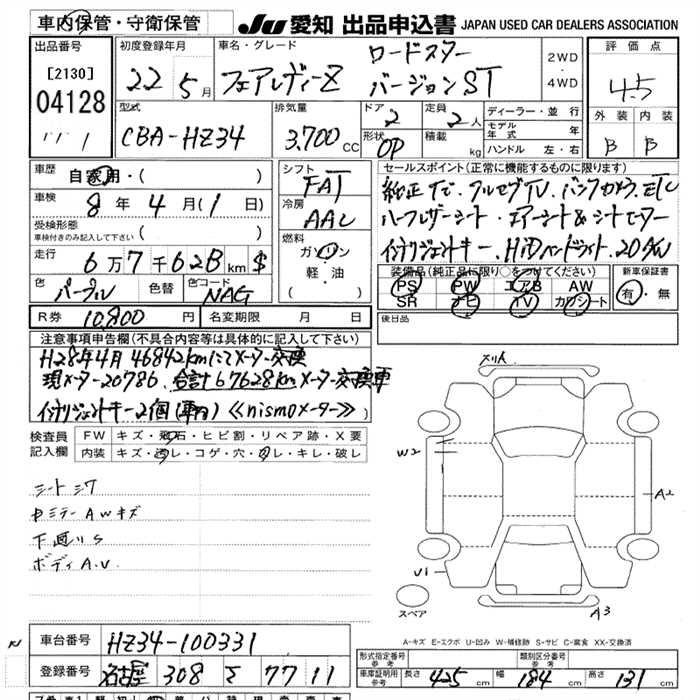 車内保管・守衛保管
JU 愛知 出品申込書 JAPAN USED CAR DEALERS ASSOCIATION
出品番号
[2130]
04128
初度登録年月
22年5月
車名・グレード
フェアレディーZ
ロードスター
バージョンST
2WD
・
4WD
評価点
4.5
外装 内装
B B
型式
CBA-HZ34
排気量
3.700 CC
ドア
2
形状
OP
定員
2人
積載
kg
ディーラー・並行
モデル年式 年
ハンドル 左・右
車歴 自家用・( )
車検 8年4月(1日)
受検形態
車検付きのみ記入して下さい ( )
走行 6万7千628km $
色 パープル 色替 色コード NAG
R券 10,800円 名変期限 月 日
シフト
FAT
冷房
AAC
燃料
ガソリン
・
軽・油
( )
セールスポイント(正常に機能するものに限ります)
純正ナビ・フルセグTV・バックカメラ・ETC
ハーフレザーシート・エアーシート&シートヒーター
インテリジェントキー・HiDヘッドライト・20AW
装備品(純正品に限り○をつけてください)
PS PW エアB AW
SR ナビ TV カワシート
新車保証書
有・無
後日品
注意事項申告欄(不具合内容等は具体的に記入して下さい)
H28年4月 46842kmにてメーター交換
現メーター20786. 合計67628kmメーター交換車
インテリジェントキー2個(車内) 《nismoメーター》
検査員記入欄
FW キズ・飛石・ヒビ割・リペア跡・X要
内装 キズ・汚レ・コゲ・穴・スレ・キレ・破レ
シートシワ
ホミラー AWキズ
下廻りS
ボディA.U.
W2
A2
U1
A3
スペア
A-キズ E-エクボ U-凹み W-補修跡 S-サビ C-腐食 XX-交換済
車台番号 HZ34-100331
登録番号 名古屋 308 7711
形式指定番号
参考
類別区分番号
参考
車庫証明用
参考
長さ 425cm 幅 184cm 高さ 131cm